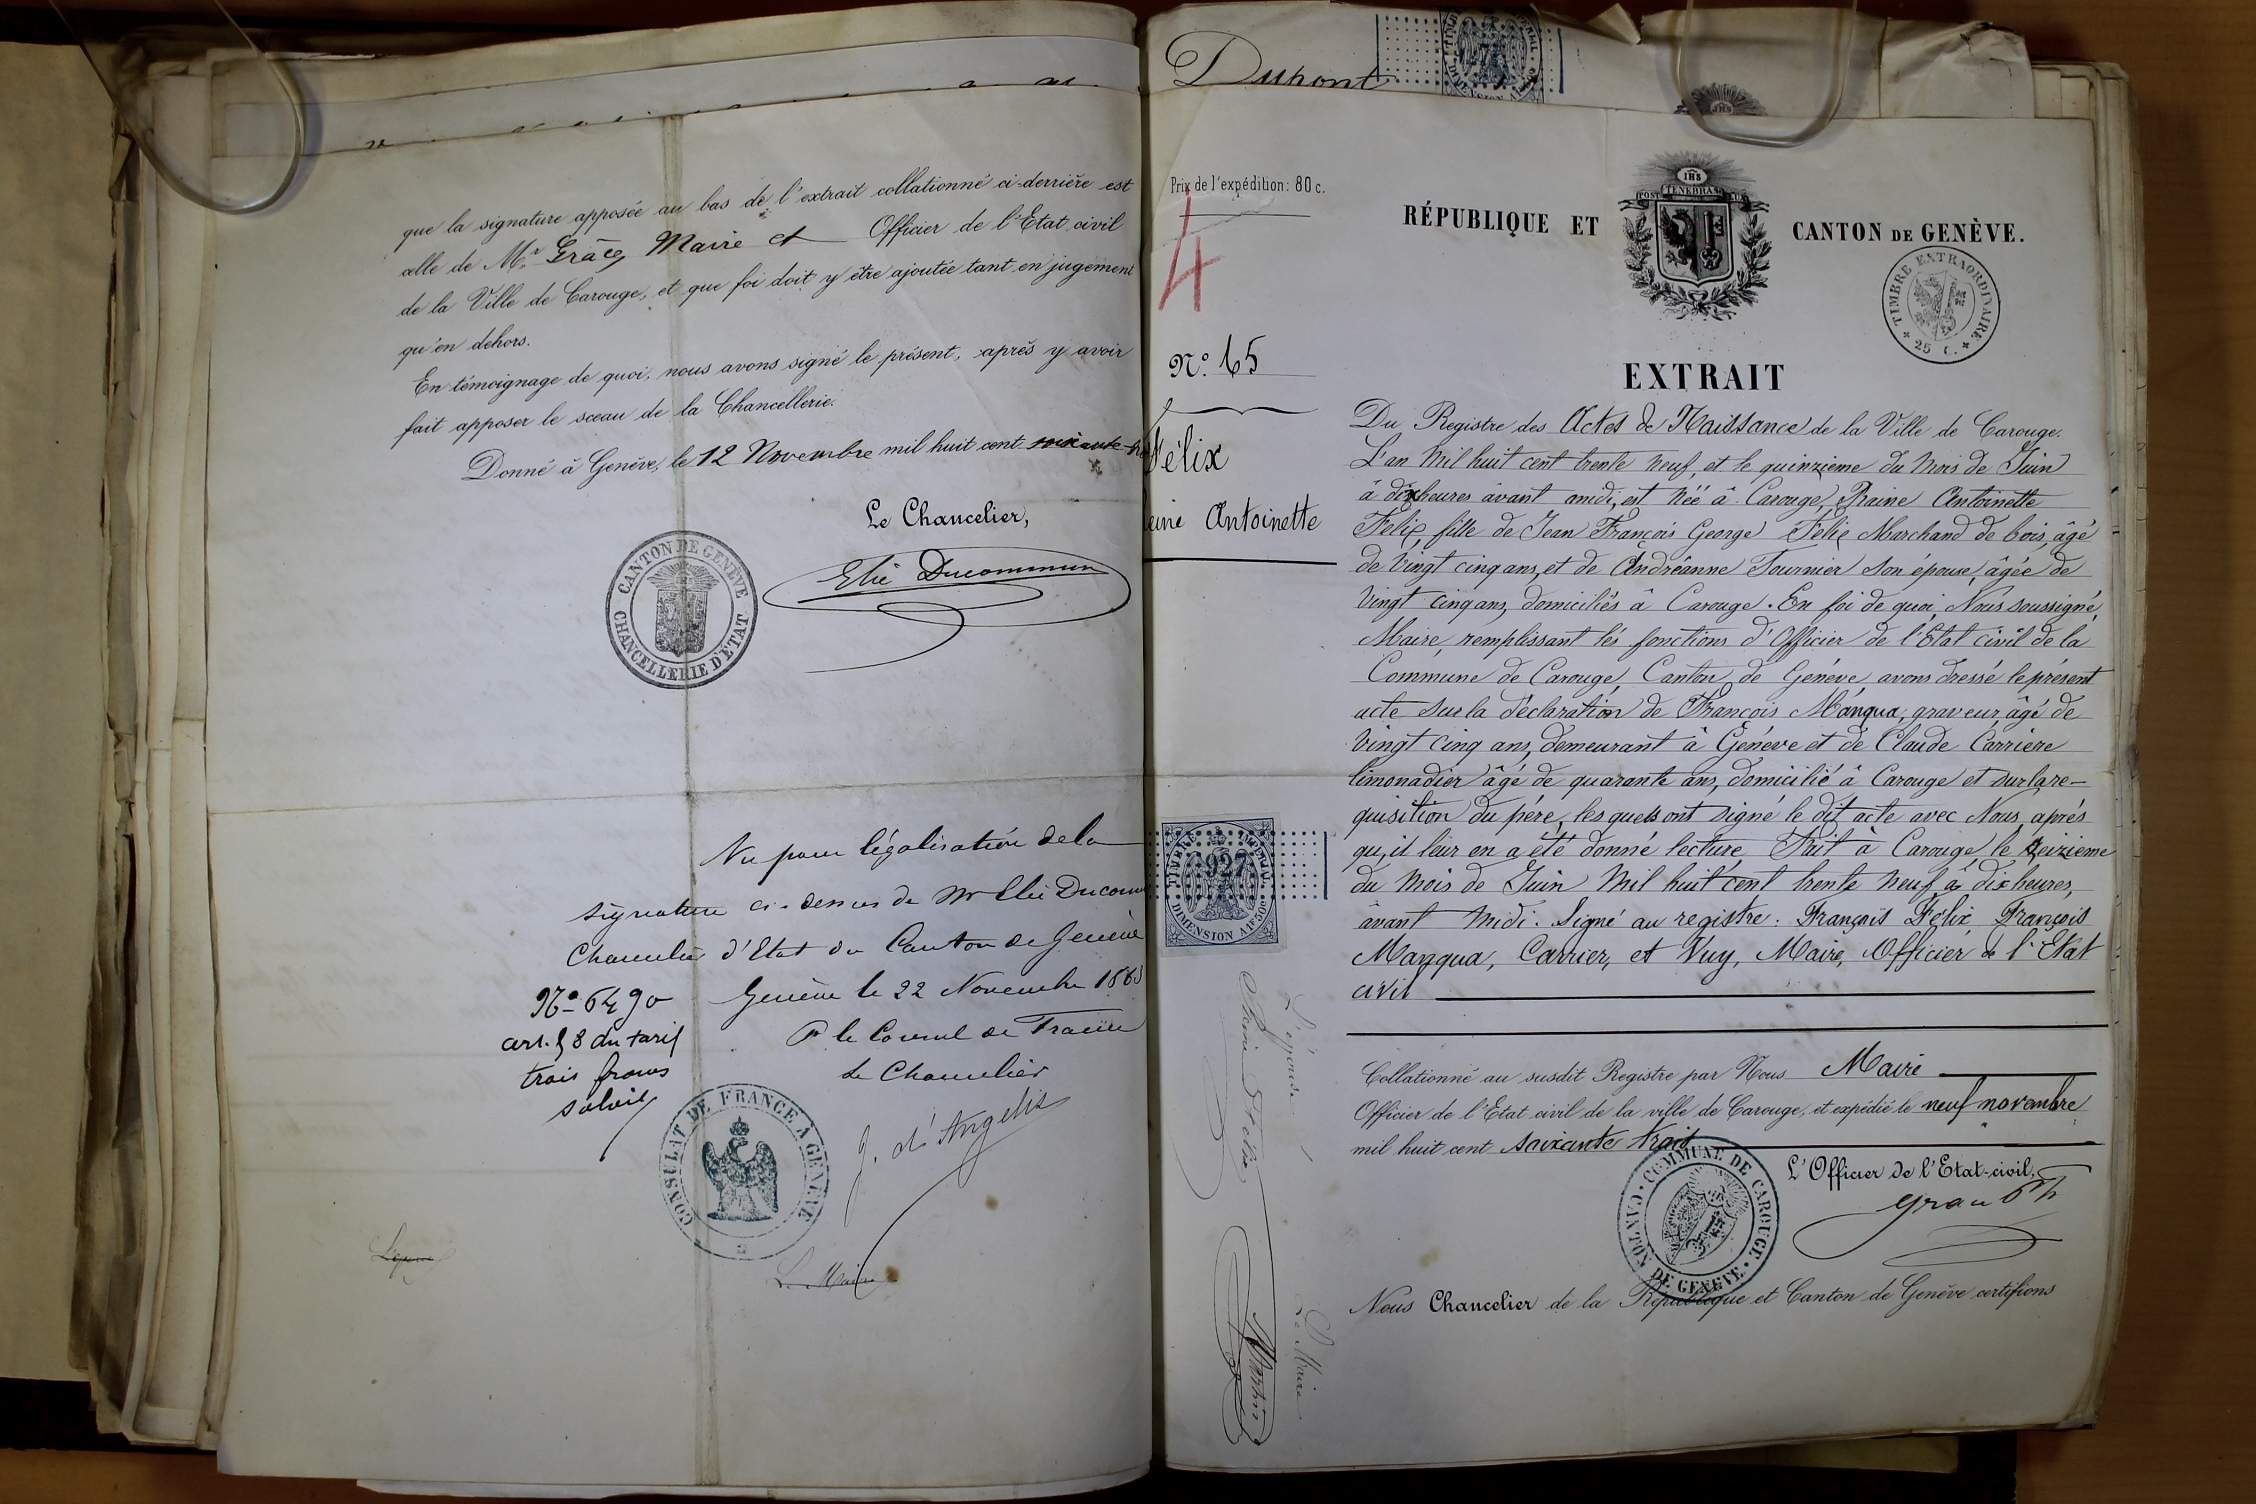 que la signature apposée au bas de l'extrait collationné ci-derrière est
celle de Mr. Maire et Officier de l'Etat civil
de la Ville de Carouge, et que foi doit y être ajoutée tant en jugement
qu'en dehors.
En témoignage de quoi, nous avons signé le présent, après y avoir
fait apposer le sceau de la Chancellerie.
Donné à Genève, le 12 Novembre mil huit cent soixante
Le Chancelier,
Elie Ducommun
CANTON DE GENÈVE
CHANCELLERIE D'ETAT
Vu pour légalisation de la
signature ci-dessus de Mr Elie Ducom
Chancelier d'Etat du Canton de Genève
Genève le 22 Novembre 186
P. le Consul de France
Le Chancelier
J. d'Angelis
No 6490
art. 58 du tarif
trois francs
CONSULAT DE FRANCE A GENÈVE
L'épouse
Le Maire
Dupont
Prix de l'expédition: 80 c.
4
No. 65
Félix
eine Antoinette
TIMBRE IMPÉRIAL
927
DIMENSION AP. 50c
L'épouse
Le Maire
RÉPUBLIQUE ET CANTON DE GENÈVE.
IHS
POST TENEBRAS LUX
TIMBRE EXTRAORDINAIRE
25 C.
EXTRAIT
Du Registre des Actes de Naissance de la Ville de Carouge.
L'an Mil huit cent trente neuf, et le quinzième du Mois de Juin
à dix heures avant midi, est née à Carouge, Raine Antoinette
Felix, fille de Jean François George Félix Marchand de bois, âgé
de Vingt cinq ans, et de Andréanne Fournier son épouse, âgée de
Vingt cinq ans, domiciliés à Carouge. En foi de quoi, Nous soussigné
Maire, remplissant les fonctions d'Officier de l'Etat civil de la
Commune de Carouge, Canton de Genéve, avons dressé le présent
acte sur la déclaration de François Manqua, graveur, âgé de
Vingt cinq ans, demeurant à Genéve et de Claude Carrière
limonadier âgé de quarante ans, domicilié à Carouge et sur la re-
quisition du père, lesquels ont signé le dit acte avec Nous, après
qu'il leur en a été donné lecture. Fait à Carouge, le seizieme
du Mois de Juin Mil huit cent trente neuf à dix heures,
avant midi. Signé au registre: François Félix, François
Manqua, Carrier, et Vuy, Maire, Officier de l'Etat
civil
Collationné au susdit Registre par Nous Maire
Officier de l'Etat civil de la ville de Carouge, et expédié le neuf novembre
mil huit cent soixante trois
L'Officier de l'Etat-civil,
COMMUNE DE CAROUGE
CANTON DE GENEVE
Nous Chancelier de la République et Canton de Genève certifions